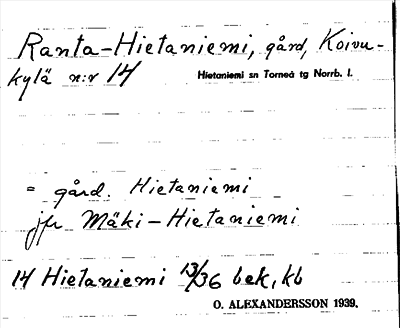 Ranta-Hietaniemi, gård, Koivu-
kylä n:r 14 Hietaniemi sn Torneå tg Norrb. l.
= gård. Hietaniemi
jfr Mäki-Hietaniemi
14 Hietaniemi 13/36 bek, kb
O. ALEXANDERSSON 1939.